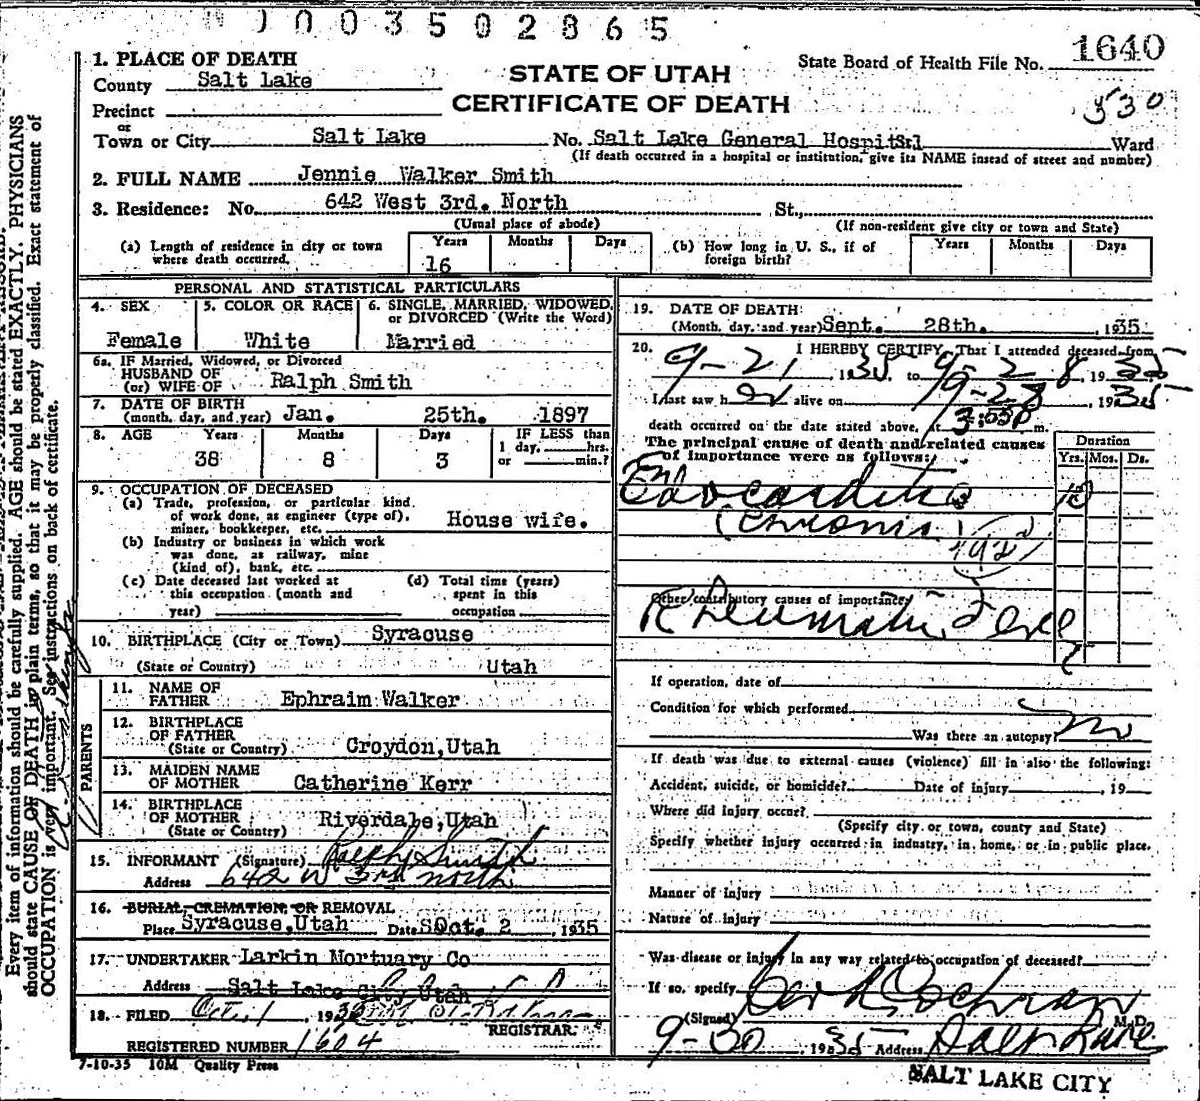 0 0 3 5 0 2 8 6 5
1. PLACE OF DEATH
County Salt Lake
Precinct
or
Town or City Salt Lake No. Salt Lake General Hospital Ward
(If death occurred in a hospital or institution, give its NAME insead of street and number)
STATE OF UTAH
CERTIFICATE OF DEATH
State Board of Health File No. 1640
530
2. FULL NAME Jennie Walker Smith
3. Residence: No. 642 West 3rd. North St.,
(Usual place of abode) (If non-resident give city or town and State)
(a) Length of residence in city or town where death occurred. Years 16 Months Days
(b) How long in U. S., if of foreign birth? Years Months Days
PERSONAL AND STATISTICAL PARTICULARS
4. SEX Female
5. COLOR OR RACE White
6. SINGLE, MARRIED, WIDOWED, or DIVORCED (Write the Word) Married
6a. IF Married, Widowed, or Divorced
HUSBAND OF
(or) WIFE OF Ralph Smith
7. DATE OF BIRTH
(month, day, and year) Jan. 25th. 1897
8. AGE Years 38 Months 8 Days 3 IF LESS than
1 day, hrs.
or min.?
9. OCCUPATION OF DECEASED
(a) Trade, profession, or particular kind
of work done, as engineer (type of),
miner, bookkeeper, etc. House wife.
(b) Industry or business in which work
was done, as railway, mine
(kind of), bank, etc.
(c) Date deceased last worked at
this occupation (month and
year)
(d) Total time (years)
spent in this
occupation.
10. BIRTHPLACE (City or Town) Syracuse
(State or Country) Utah
PARENTS
11. NAME OF
FATHER Ephraim Walker
12. BIRTHPLACE
OF FATHER
(State or Country) Croydon,Utah
13. MAIDEN NAME
OF MOTHER Catherine Kerr
14. BIRTHPLACE
OF MOTHER
(State or Country) Riverdale,Utah
15. INFORMANT (Signature) Ralph Smith
Address 642 W 3rd North
16. BURIAL, CREMATION, OR REMOVAL
Place Syracuse,Utah Date Oct. 2 , 1935
17. UNDERTAKER Larkin Mortuary Co
Address Salt Lake City Utah
18. FILED Oct. 1 , 1935
REGISTRAR
REGISTERED NUMBER 1604
7-10-35 10M Quality Press
19. DATE OF DEATH
(Month, day, and year) Sept. 28th. 1935
20. I HEREBY CERTIFY, That I attended deceased from
9-21 , 1935 to 9-28 , 1935
I last saw her alive on 9-28 , 1935
death occurred on the date stated above, at 3:55P m.
The principal cause of death and related causes
of importance were as follows:
Duration
Yrs. Mos. Ds.
Endocarditis 10
(Chronic
Other contributory causes of importance:
Rheumatic Fever
?
If operation, date of
Condition for which performed
Was there an autopsy? no
If death was due to external causes (violence) fill in also the following:
Accident, suicide, or homicide? Date of injury , 19
Where did injury occur?
(Specify city or town, county and State)
Specify whether injury occurred in industry, in home, or in public place.
Manner of injury
Nature of injury
Was disease or injury in any way related to occupation of deceased?
If so, specify
(Signed) Cochran M. D.
9-30 , 1935 Address Salt Lake
SALT LAKE CITY
Every item of information should be carefully supplied. AGE should be stated EXACTLY. PHYSICIANS
should state CAUSE OF DEATH in plain terms, so that it may be properly classified. Exact statement of
OCCUPATION is very important. See instructions on back of certificate.